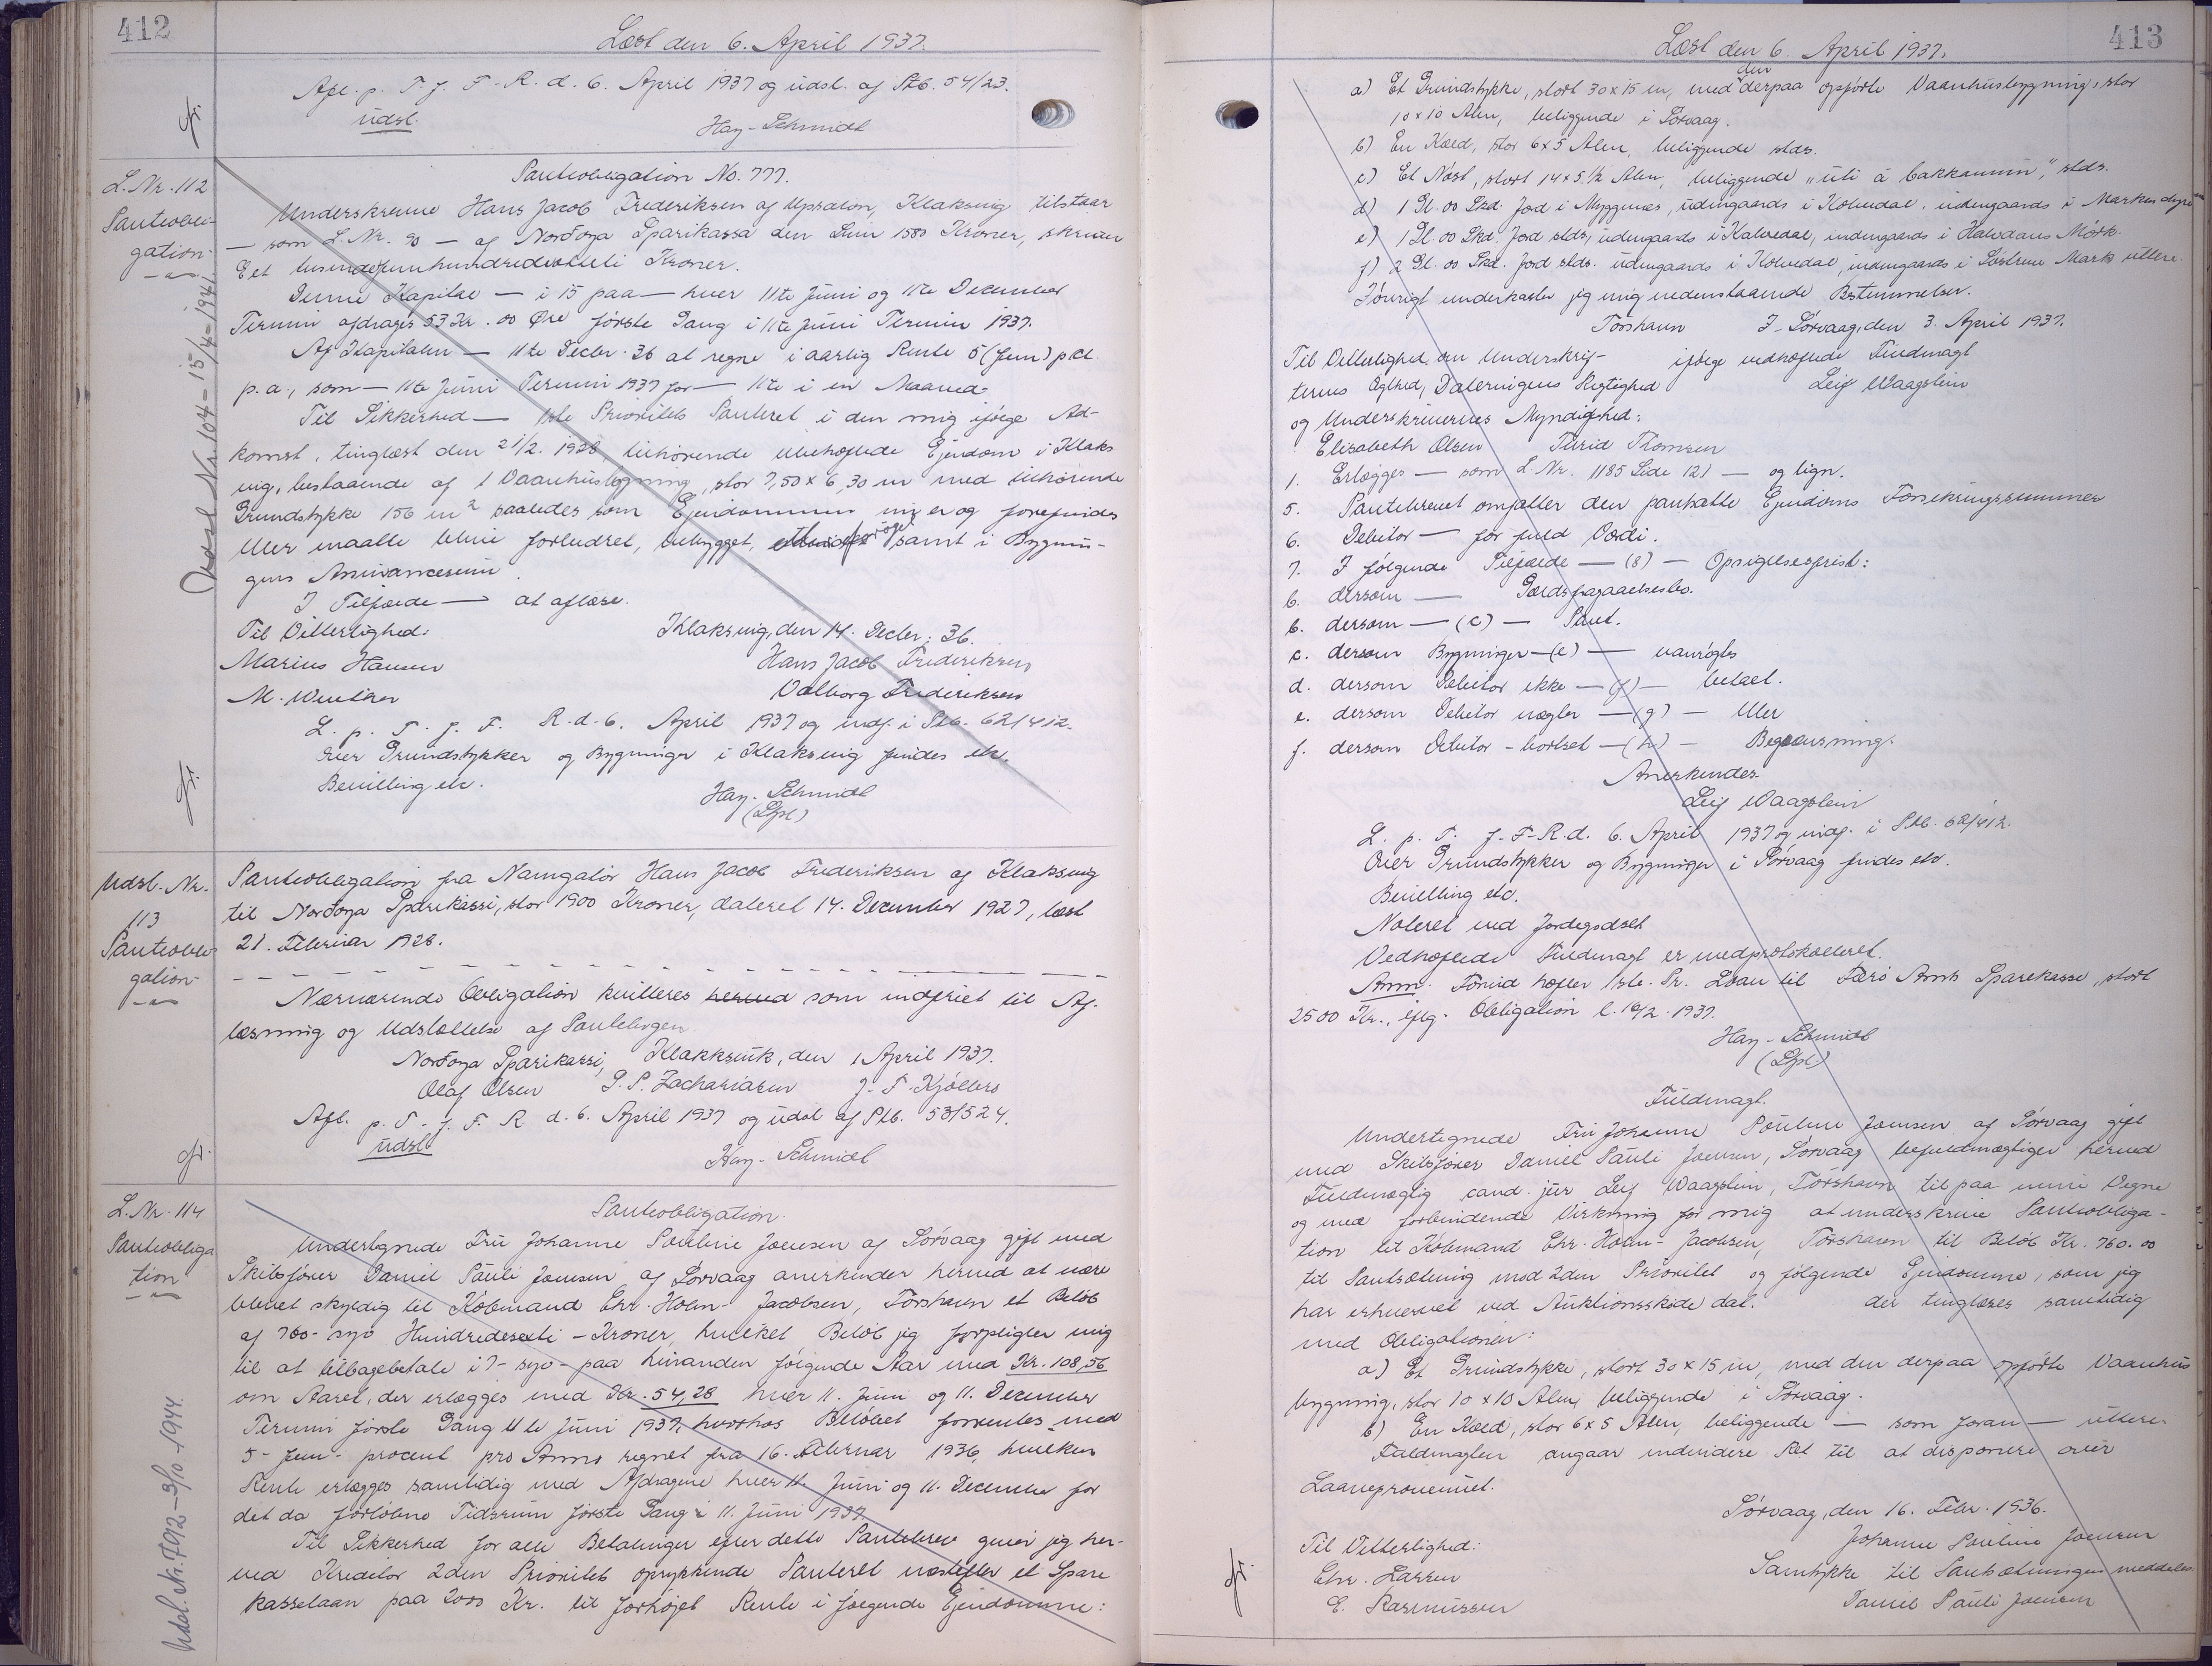 412
Læst den 6. April 1937.
Afl. p. T. f. F. R. d. 6. April 1937 og udsl. af Ptb. 54/23.
udsl.
Hay-Schmidt
L. Nr. 112
Panteobli-
gation
Udsl. Nr. 104 = 15/4 = 1941
Panteobligation No. 777.
Underskrevne Hans Jacob Frederiksen af Klaksvig tilstaar
— som L. Nr. 90 — af Norðoya Sparikassa den Sum 1580 Kroner, skriver
Eet tusindefemhundredeotteti Kroner.
Denne Kapital — i 15 paa — hver 11te Juni og 11te December
Termin afdrages 53 Kr. 00 Øre første Gang i 11te Juni Termin 1937.
Af Kapitalen — 11te Decbr. 36 at regne i aarlig Rente 5 (fem) pCt.
p. a., som — 11te Juni Termin 1937 for — 11te i en Maaned.
Til Sikkerhed — 1ste Prioritets Panteret i den mig ifølge Ad-
komst, tinglæst den 21/2. 1928, tilhørende ubehæftede Ejendom i Klaks
vig, bestaaende af 1 Vaanhusbygning, stor 7,50 x 6,30 m med tilhørende
Grundstykke 156 m2 saaledes som Ejendommen nu er og forefindes
eller maatte blive forbedret, bebygget, forøget samt i Bygnin-
gens Assurancesum.
I Tilfælde — at aflæse.
Til Vitterlighed: Klaksvig, den 14. Decbr. 36.
Marius Hansen Hans Jacob Frederiksen
M. Winther Valborg Frederiksen
L. p. T. f. F. R. d. 6. April 1937 og indf. i Ptb. 62/412.
Over Grundstykker og Bygninger i Klaksvig findes etc.
Bevilling etc.
Hay-Schmidt
(Gpl)
Udsl. Nr.
113
Panteobli-
gation
Panteobligation fra Hans Jacob Frederiksen af Klaksvig
til Norðoya Sparikassi, stor 1900 Kroner, dateret 14. December 1927, læst
21. Februar 1928.
Nærværende Obligation kvitteres herved som indfriet til Af-
læsning og Udslettelse af Pantebogen
Norðoya Sparikassi, Klakksvík, den 1 April 1937.
Olaf Olsen P. P. Zachariasen J. F. Kjølbro
Afl. p. T. f. F. R d. 6. April 1937 og udsl af Ptb. 53/524.
udsl
Hay-Schmidt
L. Nr. 114
Panteobliga
tion
Udsl. Nr. 792 - 3/10 1944.
Panteobligation.
Undertegnede Fru Johanne Pouline Joensen af Sørvaag gift med
Skibsfører Daniel Pauli Joensen af Sørvaag anerkender herved at være
blevet skyldig til Købmand Chr. Holm-Jacobsen, Tórshavn et Beløb
af 760 - syv Hundredeseksti - Kroner, hvilket Beløb jeg forpligter mig
til at tilbagebetale i 7 - syv - paa hinanden følgende Aar med Kr. 108,56
om Aaret, der erlægges med Kr. 54,28 hver 11. Juni og 11. December
Termin første Gang 11te Juni 1937, hvorhos Beløbet forrentes med
5 - fem - procent pro Anno regnet fra 16. Februar 1936, hvilken
Rente erlægges samtidig med Afdragene hver 11. Juni og 11. December for
det da forløbne Tidsrum første Gang i 11. Juni 1937
Til Sikkerhed for alle Betalinger efter dette Pantebrev giver jeg her-
ved Kreditor 2den Prioritets oprykkende Panteret næstefter et Spare
kasselaan paa 2000 Kr. til forhøjet Rente i følgende Ejendomme:
413
Læst den 6. April 1937.
a) Et Grundstykke, stort 30 x 15 m, med den derpaa opførte Vaanhusbygning, stor
10 x 10 Alen, beliggende i Sørvaag.
b) En Kæld, stor 6 x 5 Alen, beliggende stds.
c) Et Nóst, stort 14 x 5 1/2 Alen, beliggende „uti á bakkanum", stds.
d) 1 Gl. 00 Skd. Jord i Myggenæs, udengaards i Kolvedal, indengaards i
e) 1 Gl. 00 Skd. Jord stds, udengaards i Kalvedal, indengaards i Halvdans Mørk.
f) 2 Gl. 00 Skd. Jord stds. udengaards i Kolvedal, indengaards i Mark
Iøvrigt underkaster jeg mig nedenstaaende Bestemmelser.
Tórshavn I-Sørvaag, den 3. April 1937.
Til Vitterlighed om Underskrif- ifølge vedhæftede Fuldmagt
ternes Ægthed, Dateringens Rigtighed Leif Waagstein
og Underskrivernes Myndighed:
Elisabeth Olsen Turid Thomsen
1. Erlægges — som L. Nr. 1185 Side 121 — og lign.
5. Pantebrevet omfatter den pantsatte Ejendoms Forsikringssummer
6. Debitor — for fuld Værdi.
7. I følgende Tilfælde — (8) — Opsigelsesfrist:
b. dersom — Gældsfragaaelsesbo.
b. dersom — (c) — Pant.
c. dersom Bygninger — (e) — vanrøgtes
d. dersom Debitor ikke — (f) — betalt.
e. dersom Debitor nægter — (g) — eller
f. dersom Debitor - bortset — (h) — Begrænsning.
Anerkendes
Leif Waagstein
L. p. T. f. F. R. d. 6. April 1937 og indf. i Ptb. 62/412.
Over Grundstykker og Bygninger i Sørvaag findes etc.
Bevilling etc.
Noteret ved Jordegodset
Vedhæftede Fuldmagt er medprotokolleret.
Anm. Forud hæfter 1ste. Pr. Laan til Færø Amts Sparekasse, stort
2500 Kr., iflg. Obligation l. 16/2. 1937.
Hay-Schmidt
(Gpl)
Fuldmagt.
Undertegnede Fru Johanne Pouline Joensen af Sørvaag gift
med Skibsfører Daniel Pauli Joensen, Sørvaag befuldmægtiger herved
Fuldmægtig cand. jur Leif Waagstein, Tórshavn til paa mine Vegne
og med forbindende Virkning for mig at underskrive Panteobliga-
tion til Købmand Chr. Holm-Jacobsen, Tórshavn til Beløb Kr. 760.00
til Pantsætning mod 2den Prioritet og følgende Ejendomme, som jeg
har erhvervet ved Auktionsskøde dat. der tinglæses samtidig
med Obligationen:
a) Et Grundstykke, stort 30 x 15 m, med den derpaa opførte Vaanhus
bygning, stor 10 x 10 Alen, beliggende i Sørvaag.
b) En Kæld, stor 6 x 5 Alen, beliggende — som foran —
Fuldmagten angaar endvidere Ret til at disponere over
Laaneprovenuet.
Sørvaag, den 16. Febr. 1936.
Til Vitterlighed: Johanne Pouline Joensen
Chr. Larsen Samtykke til Pantsætningen meddeles.
E. Rasmussen Daniel Pauli Joensen